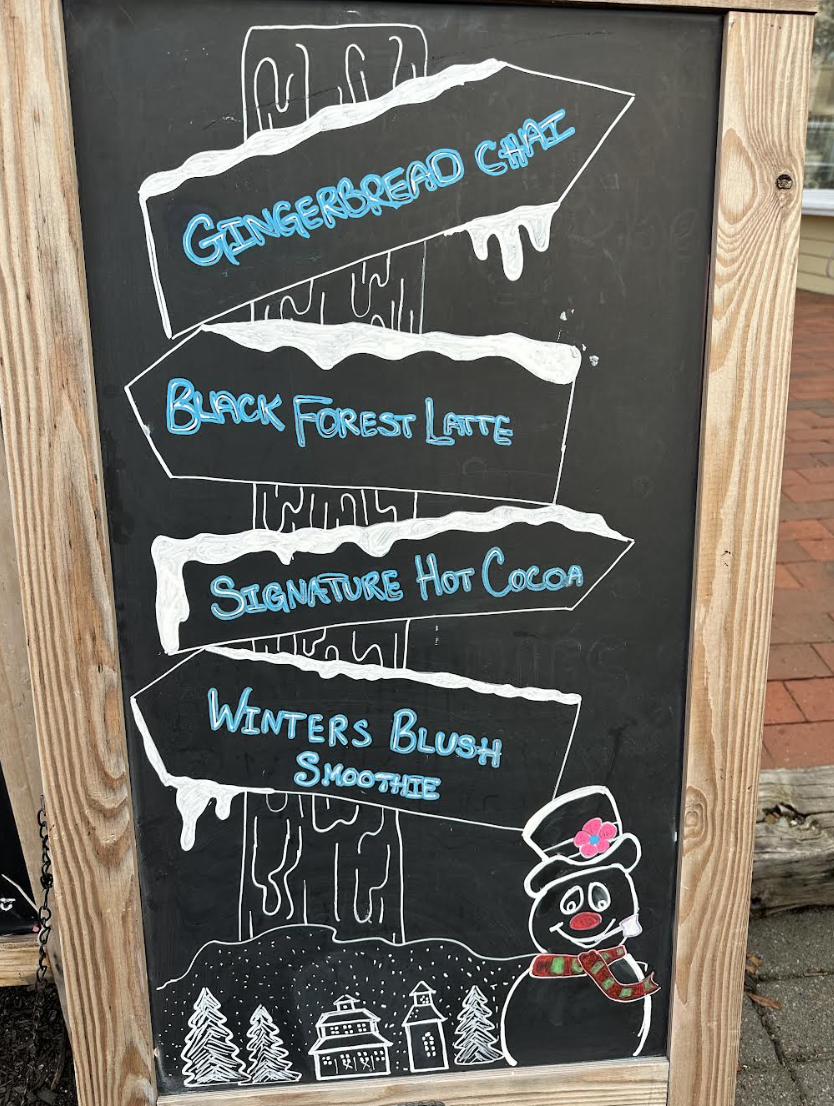 GINGERBREAD CHAI
BLACK FOREST LATTE
SIGNATURE HOT COCOA
WINTERS BLUSH
SMOOTHIE